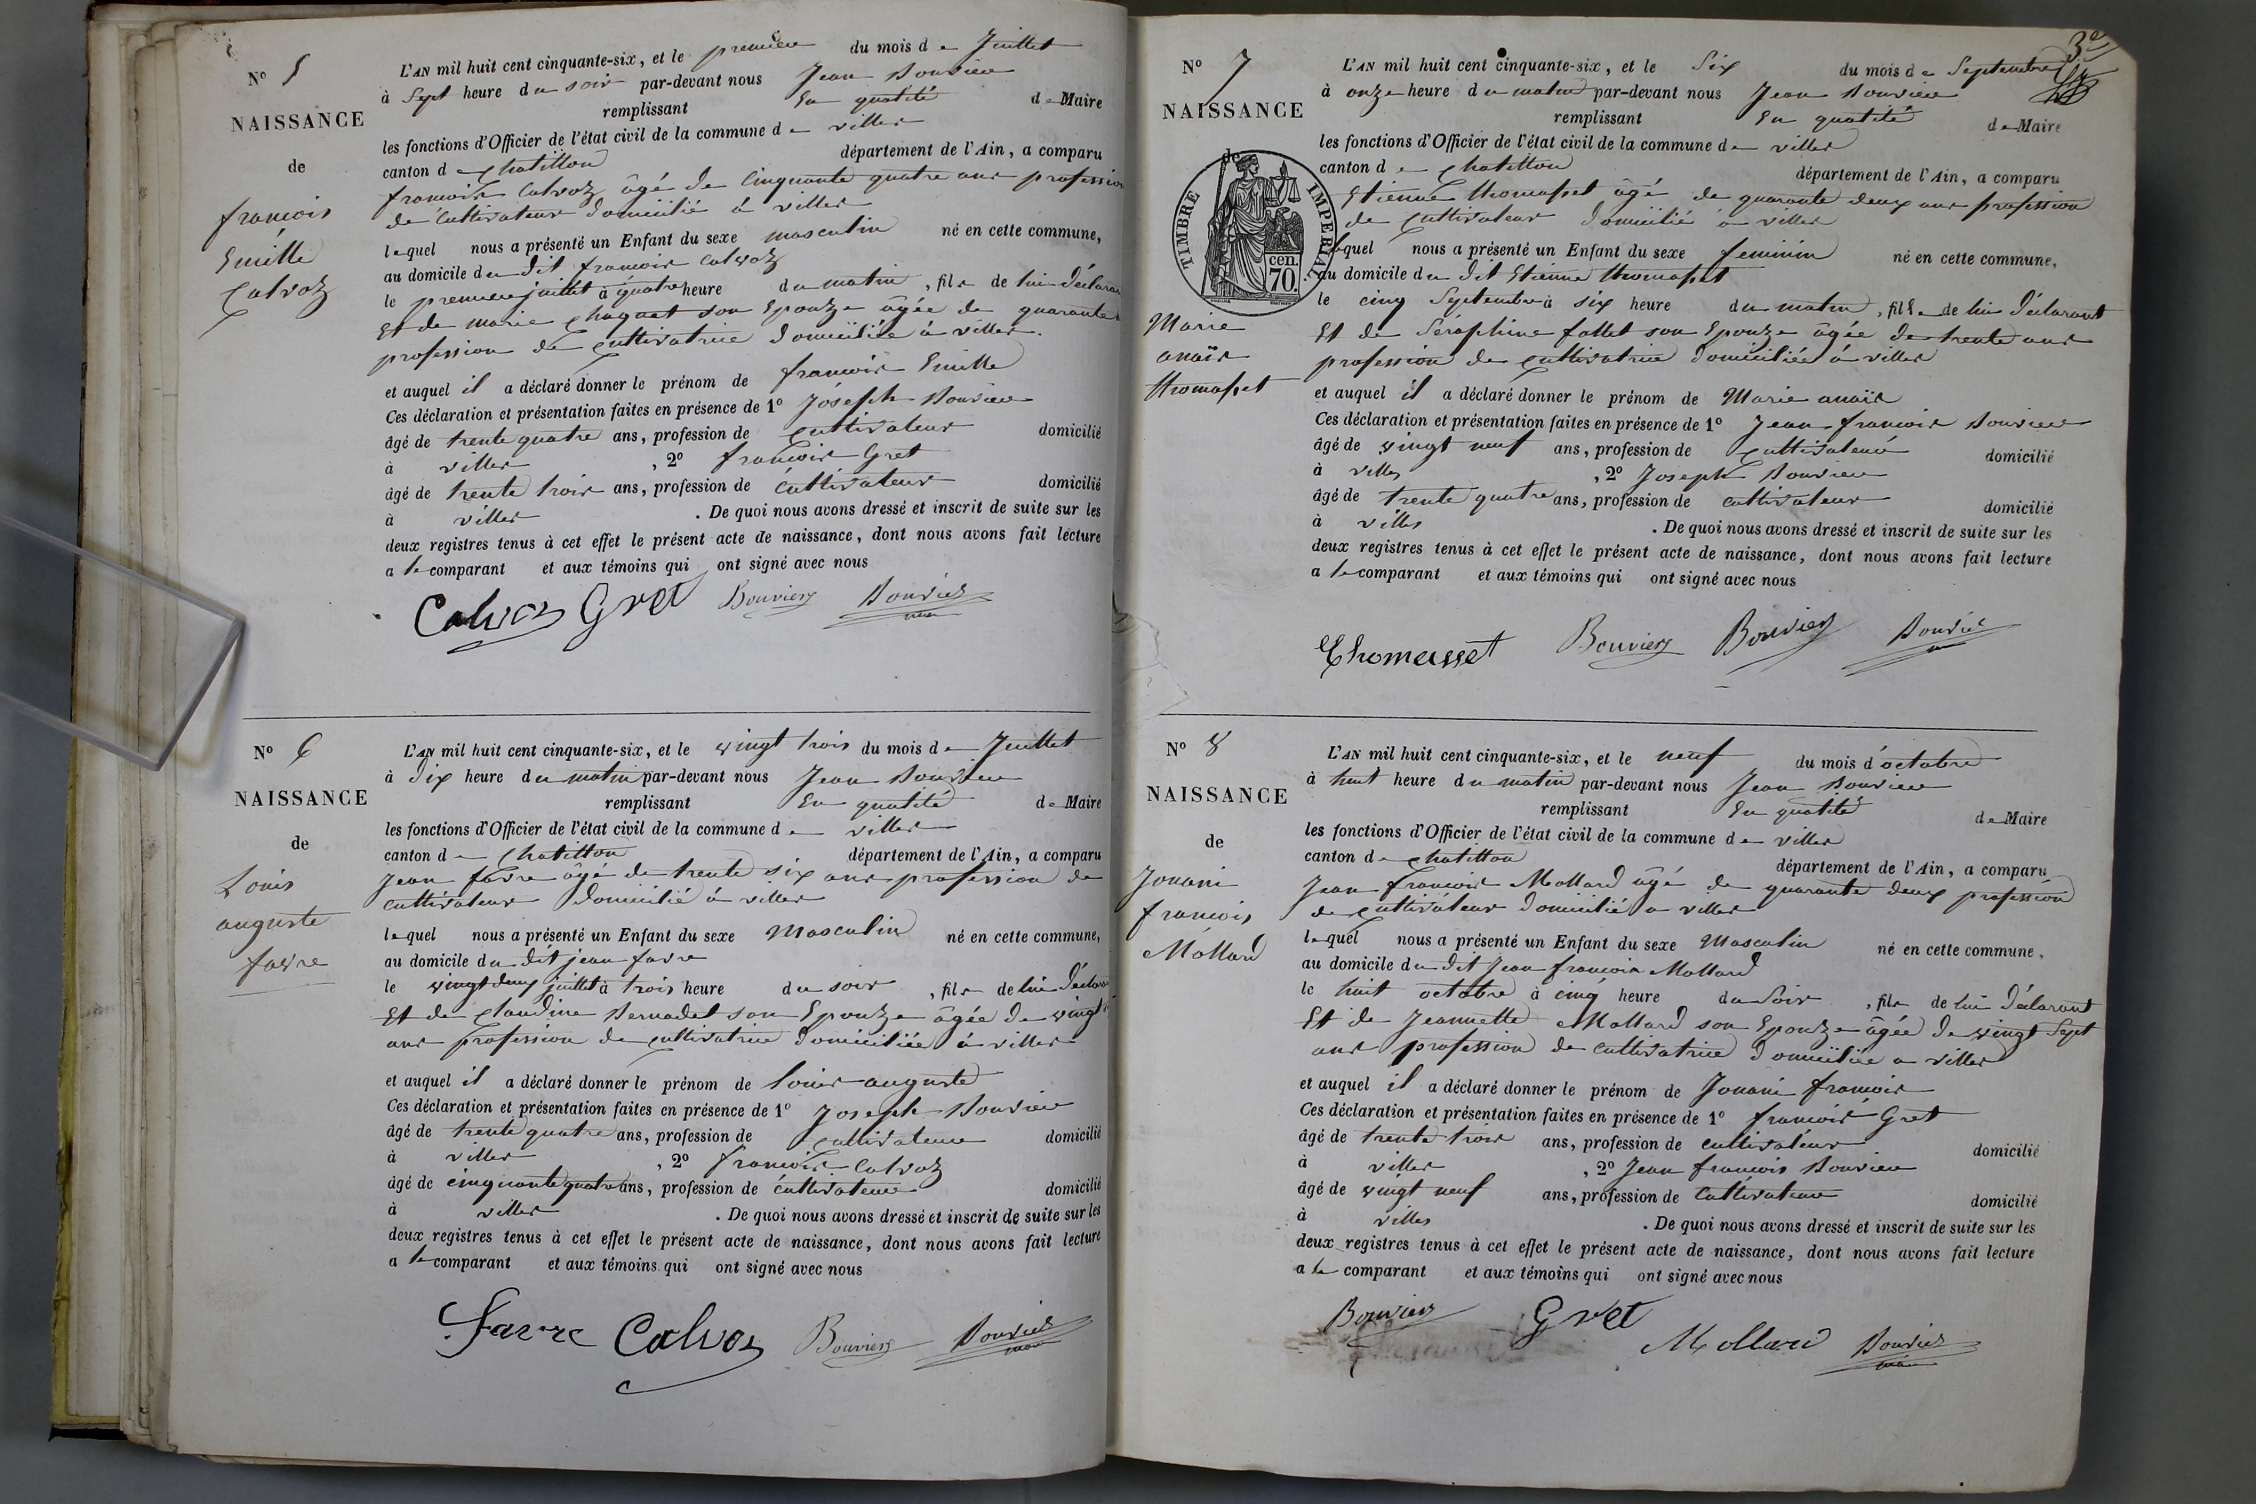 N° 5
NAISSANCE
de
françois
Emille
Calvoz
L'AN mil huit cent cinquante-six, et le première du mois de Juillet
à Sept heure du soir par-devant nous Jean Bouvier
remplissant En qualité de Maire
les fonctions d'Officier de l'état civil de la commune de villes
canton de Chatillon département de l'Ain, a comparu
françois Calvoz âgé de Cinquante quatre ans profession
de Cultivateur domicilié à villes
lequel nous a présenté un Enfant du sexe masculin né en cette commune,
au domicile du dit françois Calvoz
le premier juillet à quatre heure du matin, fils de lui Déclarant
Et de marie Choquet son Epouze âgée de quarante
profession de Cultivatrice domiciliée à villes.
et auquel il a déclaré donner le prénom de françois Emille
Ces déclaration et présentation faites en présence de 1° Joseph Bouvier
âgé de trente quatre ans, profession de Cultivateur domicilié
à villes, 2° françois Gret
âgé de trente trois ans, profession de Cultivateur domicilié
à villes. De quoi nous avons dressé et inscrit de suite sur les
deux registres tenus à cet effet le présent acte de naissance, dont nous avons fait lecture
a le comparant et aux témoins qui ont signé avec nous
Calvoz Gret Bouvier Bouvier
N° 6
NAISSANCE
de
Louis
auguste
favre
L'AN mil huit cent cinquante-six, et le vingt trois du mois de Juillet
à Dix heure du matin par-devant nous Jean Bouvier
remplissant En qualité de Maire
les fonctions d'Officier de l'état civil de la commune de villes
canton de Chatillon département de l'Ain, a comparu
Jean favre âgé de trente six ans profession de
cultivateur domicilié à villes
lequel nous a présenté un Enfant du sexe Masculin né en cette commune,
au domicile du dit jean favre
le vingt deux juillet à trois heure du soir, fils de lui Déclarant
Et de Claudine Bernadet son Epouze âgée de vingt
ans profession de Cultivatrice domiciliée à villes
et auquel il a déclaré donner le prénom de Louis auguste
Ces déclaration et présentation faites en présence de 1° Joseph Bouvier
âgé de trente quatre ans, profession de Cultivateur domicilié
à villes, 2° françois Calvoz
âgé de cinquante quatre ans, profession de Cultivateur domicilié
à villes. De quoi nous avons dressé et inscrit de suite sur les
deux registres tenus à cet effet le présent acte de naissance, dont nous avons fait lecture
a le comparant et aux témoins qui ont signé avec nous
Favre Calvoz Bouvier Bouvier
3e
N° 7
NAISSANCE
de
TIMBRE IMPERIAL
70 cen.
Marie
anaïs
thomasset
L'AN mil huit cent cinquante-six, et le Six du mois de Septembre
à onze heure du matin par-devant nous Jean Bouvier
remplissant En qualité de Maire
les fonctions d'Officier de l'état civil de la commune de villes
canton de Chatillon département de l'Ain, a comparu
Etienne thomasset âgé de quarante deux ans profession
de Cultivateur domicilié à villes
lequel nous a présenté un Enfant du sexe feminin né en cette commune,
au domicile du dit Etienne thomasset
le cinq Septembre à six heure du matin, fille de lui Déclarant
Et de Séraphine fallet son Epouze âgée de trente ans
profession de Cultivatrice domiciliée à villes
et auquel il a déclaré donner le prénom de Marie anaïs
Ces déclaration et présentation faites en présence de 1° Jean françois Bouvier
âgé de vingt neuf ans, profession de Cultivateur domicilié
à villes, 2° Joseph Bouvier
âgé de trente quatre ans, profession de cultivateur domicilié
à villes. De quoi nous avons dressé et inscrit de suite sur les
deux registres tenus à cet effet le présent acte de naissance, dont nous avons fait lecture
a le comparant et aux témoins qui ont signé avec nous
Thomasset Bouvier Bouvier Bouvier
N° 8
NAISSANCE
de
Jouani
françois
Mollard
L'AN mil huit cent cinquante-six, et le neuf du mois d'octobre
à huit heure du matin par-devant nous Jean Bouvier
remplissant En qualité de Maire
les fonctions d'Officier de l'état civil de la commune de villes
canton de Chatillon département de l'Ain, a comparu
Jean françois Mollard âgé de quarante deux profession
de Cultivateur domicilié a villes
lequel nous a présenté un Enfant du sexe Masculin né en cette commune,
au domicile du dit Jean françois Mollard
le huit octobre à cinq heure du Soir, fils de lui Déclarant
Et de Jeannette Mollard son Epouze âgée de vingt Sept
ans profession de cultivatrice domiciliée a villes
et auquel il a déclaré donner le prénom de Jouani françois
Ces déclaration et présentation faites en présence de 1° françois Gret
âgé de trente trois ans, profession de cultivateur domicilié
à villes, 2° Jean françois Bouvier
âgé de vingt neuf ans, profession de Cultivateur domicilié
à villes. De quoi nous avons dressé et inscrit de suite sur les
deux registres tenus à cet effet le présent acte de naissance, dont nous avons fait lecture
a le comparant et aux témoins qui ont signé avec nous
Bouvier Gret Mollard Bouvier